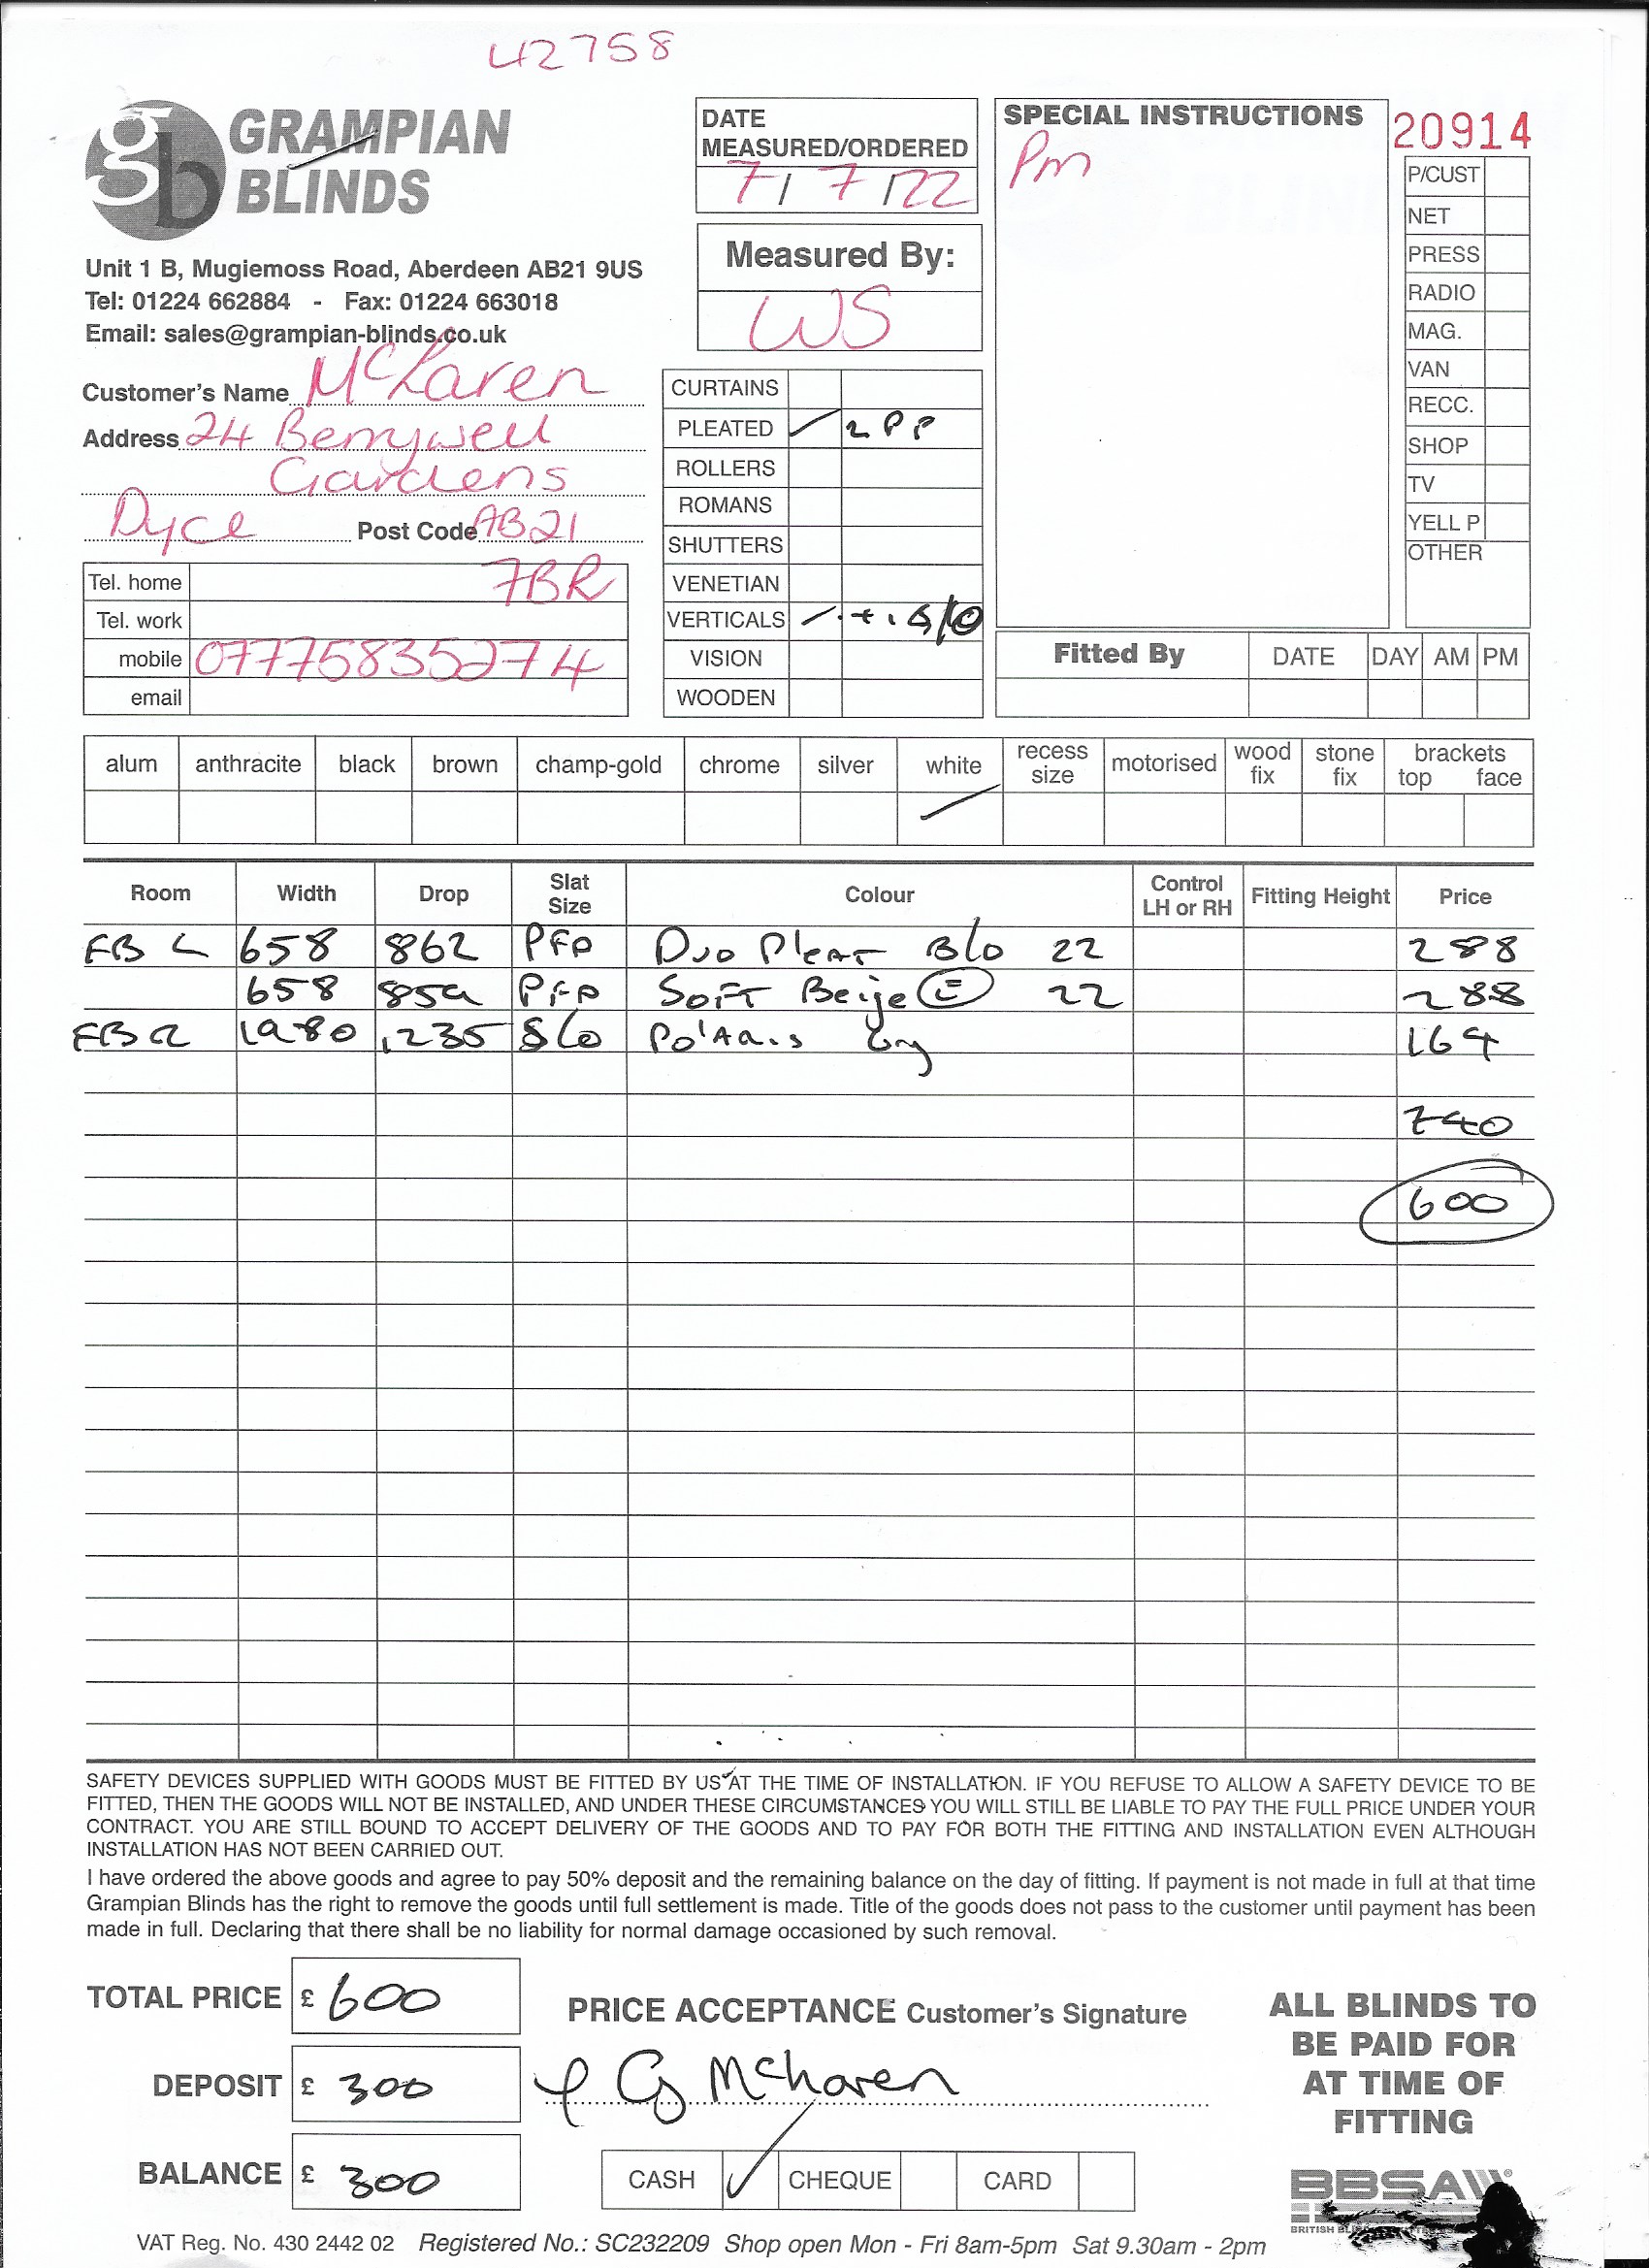 42758
GRAMPIAN
BLINDS
Unit 1 B, Mugiemoss Road, Aberdeen AB21 9US
Tel: 01224 662884 - Fax: 01224 663018
Email: sales@grampian-blinds.co.uk
DATE
MEASURED/ORDERED
7/7/22
Measured By:
WS
SPECIAL INSTRUCTIONS
Pm
20914
P/CUST
NET
PRESS
RADIO
MAG.
VAN
RECC.
SHOP
TV
YELL P
OTHER
Customer's Name McLaren
Address 24 Berrywell
Gardens
Dyce Post Code AB21
7BR
Tel. home
Tel. work
mobile 07775835274
email
CURTAINS
PLEATED ✓ 2 PP
ROLLERS
ROMANS
SHUTTERS
VENETIAN
VERTICALS ✓ + 1 S/O
VISION
WOODEN
Fitted By DATE DAY AM PM
alum anthracite black brown champ-gold chrome silver white recess size motorised wood fix stone fix brackets top face
Room Width Drop Slat Size Colour Control LH or RH Fitting Height Price
FB L 658 862 PFP Duo Pleat Blo 22 288
658 859 PFP Soft Beige E 22 288
FB R 1980 1235 S/o Polaris 164
740
600
SAFETY DEVICES SUPPLIED WITH GOODS MUST BE FITTED BY US AT THE TIME OF INSTALLATION. IF YOU REFUSE TO ALLOW A SAFETY DEVICE TO BE
FITTED, THEN THE GOODS WILL NOT BE INSTALLED, AND UNDER THESE CIRCUMSTANCES YOU WILL STILL BE LIABLE TO PAY THE FULL PRICE UNDER YOUR
CONTRACT. YOU ARE STILL BOUND TO ACCEPT DELIVERY OF THE GOODS AND TO PAY FOR BOTH THE FITTING AND INSTALLATION EVEN ALTHOUGH
INSTALLATION HAS NOT BEEN CARRIED OUT.
I have ordered the above goods and agree to pay 50% deposit and the remaining balance on the day of fitting. If payment is not made in full at that time
Grampian Blinds has the right to remove the goods until full settlement is made. Title of the goods does not pass to the customer until payment has been
made in full. Declaring that there shall be no liability for normal damage occasioned by such removal.
TOTAL PRICE £ 600
DEPOSIT £ 300
BALANCE £ 300
PRICE ACCEPTANCE Customer's Signature
G McLaren
CASH ✓ CHEQUE CARD
ALL BLINDS TO
BE PAID FOR
AT TIME OF
FITTING
BBSA
BRITISH
VAT Reg. No. 430 2442 02 Registered No.: SC232209 Shop open Mon - Fri 8am-5pm Sat 9.30am - 2pm